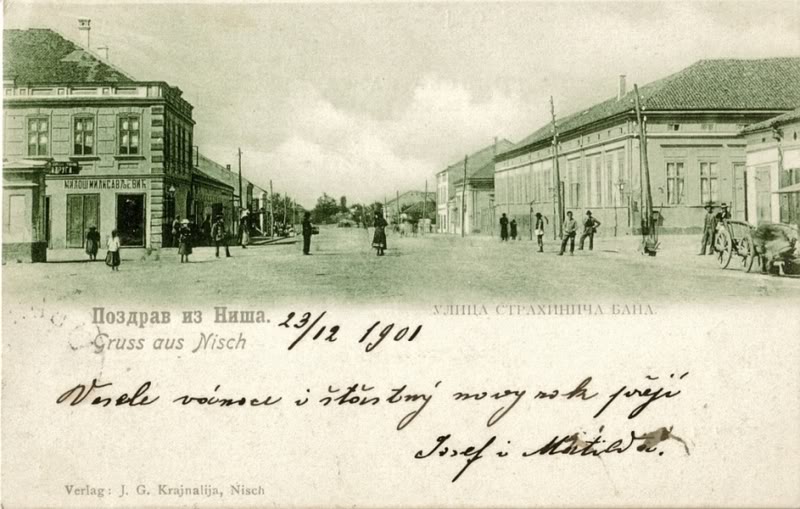 МИЛОШ МИЛИСАВЉЕВИЋ
Поздрав из Ниша.
УЛИЦА СТРАХИНИЧА БАНА.
Gruss aus Nisch
23/12 1901
Vesele vánoce i šťastný nový rok přejí
Josef i Matilda.
Verlag: J. G. Krajnalija, Nisch